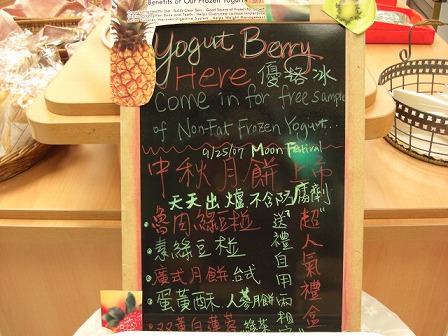 Benefits of Our Frozen Yogurt
Yogurt Berry
Here 優格冰
Come in for free sample
of Non-Fat Frozen Yogurt...
9/25/07 Moon Festival
中秋月餅上市
天天出爐不含防腐劑
·魯肉綠豆椪
·素綠豆椪
·廣式月餅.台式
·蛋黃酥.人蔘月餅
·双蛋白蓮蓉 綠茶
送禮自用兩相宜
"超"人氣禮盒